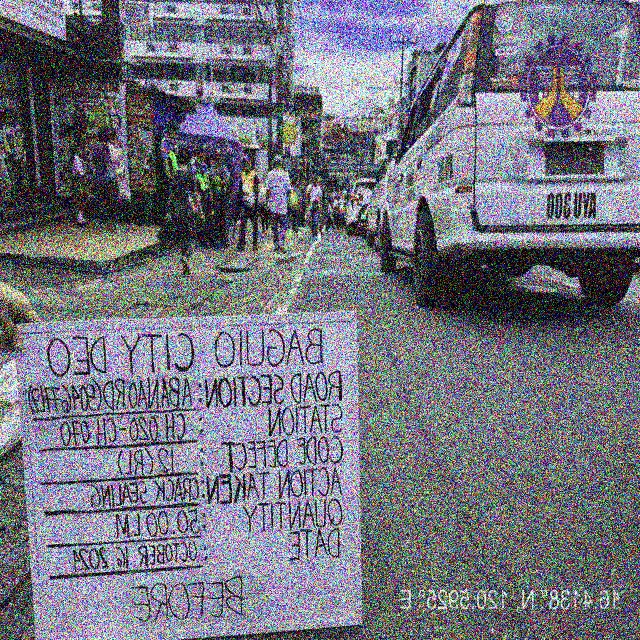 BAGUIO CITY DEO
ROAD SECTION: ABANAO RD
STATION : CH 020 - CH 070
CODE DEFECT : 12 (RL)
ACTION TAKEN: CRACK SEALING
QUANTITY : 50.00 LM
DATE : OCTOBER 16, 2024
BEFORE
16.4138° N, 120.5925° E